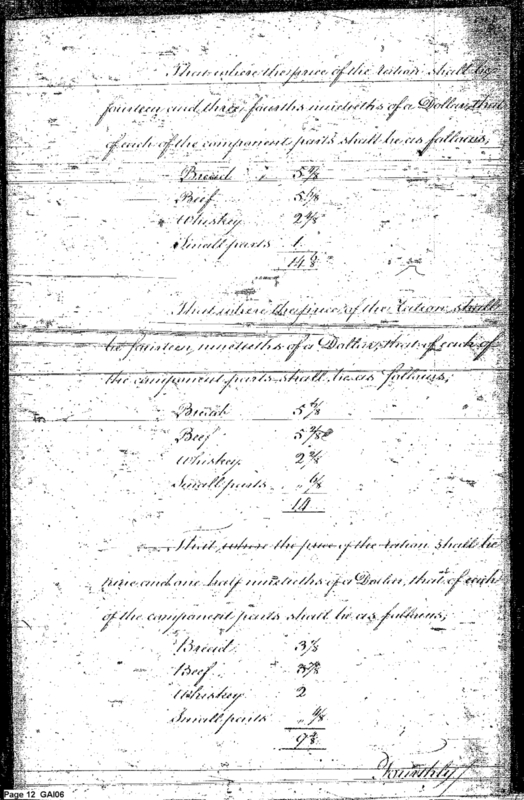 That where the price of the ration shall be
fourteen and three fourths ninetieths of a Dollar, that
of each of the component parts shall be as follows,
Bread
Beef
Whiskey
Small parts 1
14 6/8
That where the price of the ration shall
be fourteen ninetieths of a Dollar, that of each of
the component parts shall be as follows,
Bread
Beef 5 2/8
Whiskey
Small parts " 6/8
14
That, where the price of the ration shall be
nine and one half ninetieths of a Dollar, that of each
of the component parts shall be as follows,
Bread
Beef
Whiskey 2
Small parts " 4/8
9
Fourthly
Page 12 GAI06